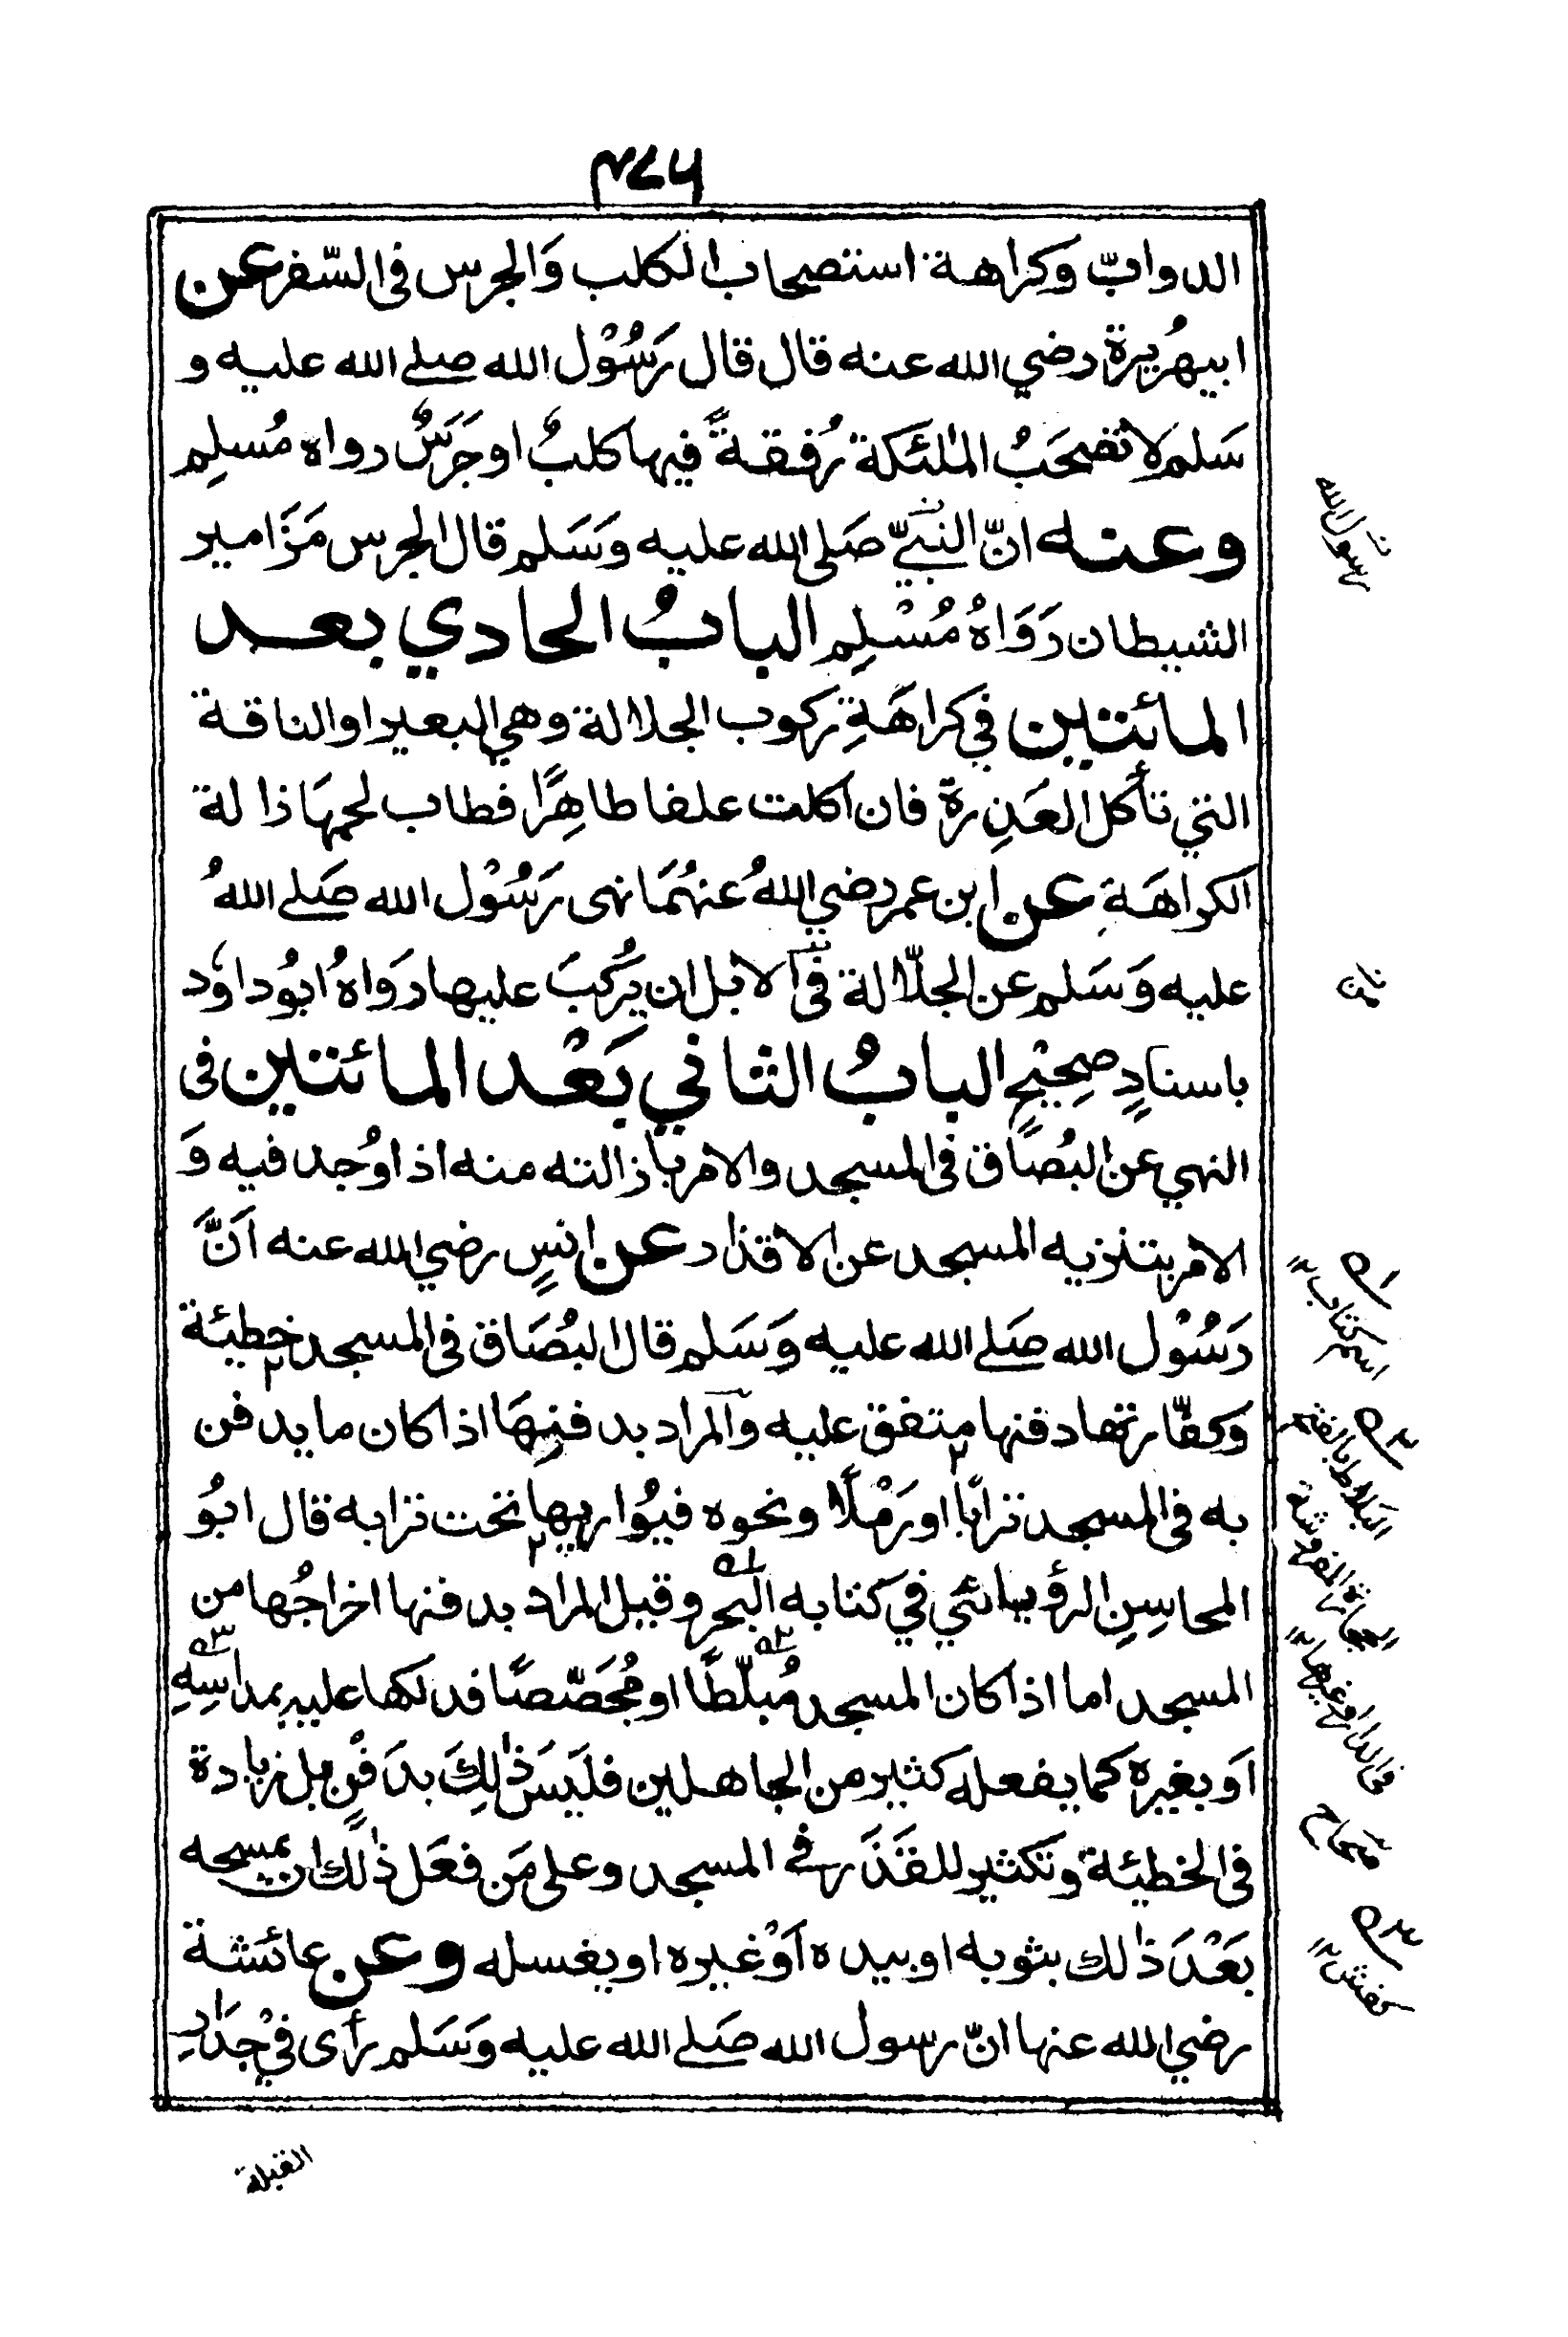 ٤٧٦
الدوابّ وَكراهة استصحاب الكلب وَالجرس فى السّفر عن
ابيهُريرة رضي الله عنه قال قال رَسُوْل الله صلے الله عليه و
سَلم لا تصْحَبُ الملٰئكة رُفقةً فيها كلبٌ او جَرَسٌ رواه مُسلِم
وعنه انّ النبيّ صَلى الله عليه وَسَلم قال الجرس مَزَامير
الشيطان رَوَاهُ مُسْلِم البابُ الحادي بعد
المائتين في كراهَةِ ركوب الجلالة وهي البعير او الناقة
التي تأكل العَذِرة فان اكلت علفا طاهِرًا فطاب لحمهَا ذالة
الكراهَةِ عن ابن عمر رضي اللهُ عنهُمَا نهى رَسُوْل الله صَلے اللهُ
عليه وَسَلم عن الجلّالة فى الابل ان يُركبَ عليها رَوَاهُ ابُو داوٗد
باسنادٍ صحِيْحٍ البابُ الثاني بَعْد المائتين فى
النهي عن البُصَاق فى المسجد والامر باذالته منه اذا وُجد فيه وَ
الامر بتنزيه المسجد عن الاقذار عن انسٍ رضي الله عنه اَنَّ
رَسُوْل الله صَلے الله عليه وَسَلم قال البُصَاق فى المسجد خطيئة
وَكفّارتها دفنها متفق عليه والمراد بدفنِهَا اذا كان ما يدفن
به فى المسجد ترابًا او رَمْلًا ونحوه فيُواريها تحت ترابه قال ابُو
المحاسِنِ الرؤيائي في كتابه البحر وقيل المراد بدفنها اخراجُها من
المسجد اما اذا كان المسجد مُبلّطًا او مُجَصّصًا فدلكها عليه بمداسِهِ
اَو بغيره كما يفعله كثير من الجاهلين فليَسَ ذٰلِكَ بدَفْنٍ بل زيادة
فى الخطيئة وتكثير للقَذَر فے المسجد وعلى مَن فعَل ذٰلك ان يمسحه
بَعْدَ ذٰلك بثوبه او بيده اَوْ غيره او يغسله وعن عائشة
رضي الله عنها انّ رسول الله صَلے الله عليه وَسَلم رأى فيْ جدَارِ
رسول الله
اسم كتاب
كفش
القبلة